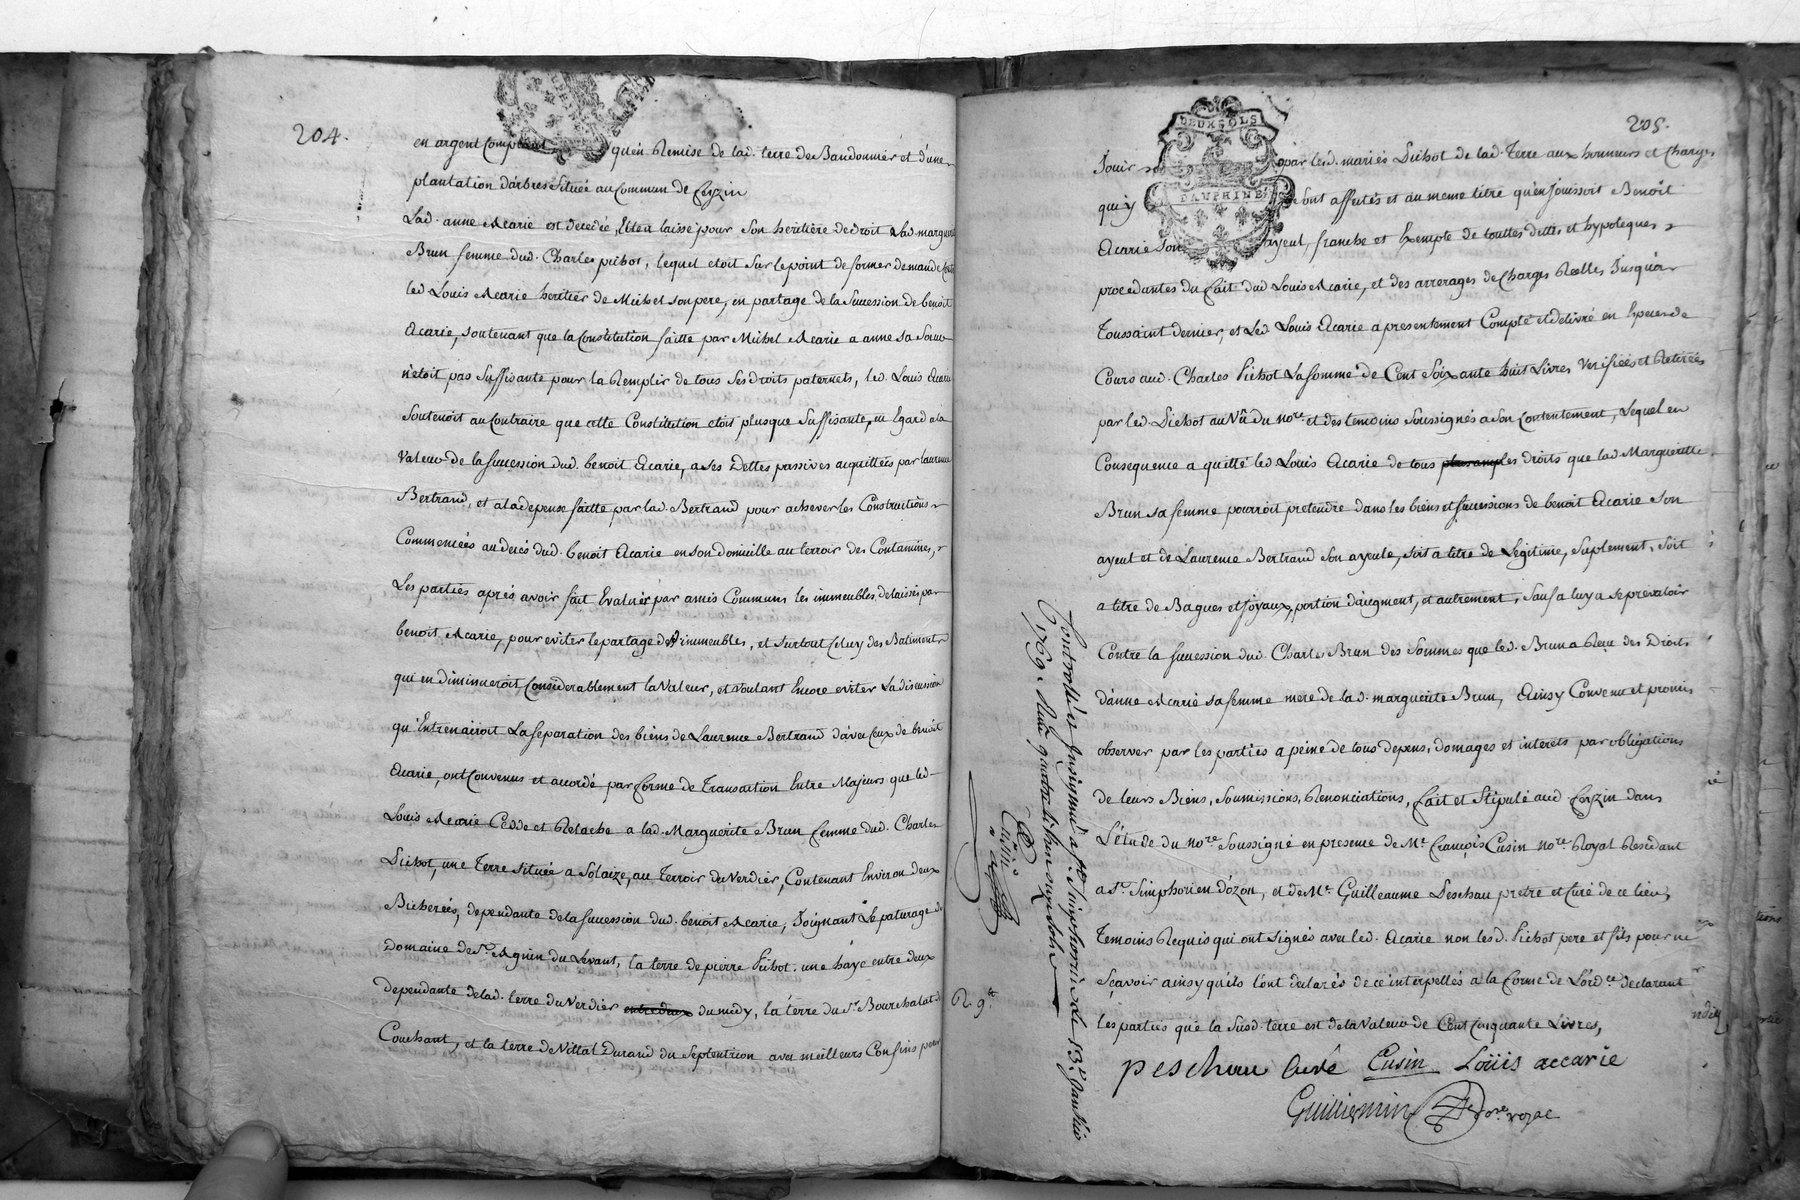 204.
en argent comptant qu'en Remise de lad. terre de Bandonnier et d'une
plantation d'arbres Situéé au Commun de Corzin
Lad. anne Acarie est decedéé, Elle a laissé pour Son heritière de droit Lad. marguerite
Brun femme dud. Charles pichot, lequel etoit Sur le point de former demande
led. Louis Acarie heritier de Michel Son pere, en partage de la Succession de benoit
Acarie, soutenant que la Constitution faitte par Michel Acarie a anne Sa Sœur
n'etoit pas Suffisante pour la Remplir de tous Ses droits paternels, led. Louis Acarie
Soutenoit au Contraire que cette Constitution etoit plusque Suffisante, eu Egard a la
Valeur de la Succession dud. benoit Acarie, a Ses Dettes passives acquittéés par Laurence
Bertrand, et a la depense faitte par lad. Bertrand pour achever les Constructions
Commencéés au decés dud. benoit Acarie en son domicille au terroir des Contamines,
Les partiés aprés avoir fait Evaluér par amis Communs les immeubles delaissés par
benoit Acarie, pour eviter le partage des immeubles, et Surtout Celuy des Batiments
qui en diminueroit Considerablement la Valeur, et Voulant Encore eviter La discussion
qu'Entrenairoit La Separation des biens de Laurence Bertrand d'avec Ceux de benoit
Acarie, ont Convenus et accordé par forme de Transaction Entre Majeurs que led.
Louis Acarie Cedde et Relache a lad. Marguerite Brun femme dud. Charles
Pichot, une Terre Situéé a Solaize, au Terroir du Verdier, Contenant Environ deux
Bicheréés, dependante de la Succession dud. benoit Acarie, Joignant Le paturage du
Domaine de St. Agnin du Levant, la terre de pierre Pichot. une haye entre deux
dependante de lad. terre du Verdier entre deux du midy, la terre du Sr. Bourchalat du
Couchant, et la terre de Vittal Durand du Septentrion avec meilleurs Confins pour
205.
DEUX SOLS
DAUPHINE
Jouir par lesd. mariés Pichot de lad. Terre aux honneurs et Charges
qui y Sont affectés et au meme titre qu'en Joüissoit Benoit
Acarie Son ayeul, franche et Exempte de touttes dettes et hypoteques
procedantes du fait dud Louis Acarie, et des arrerages de Charges Réelles Jusqu'a
Toussaint dernier, et Led. Louis Acarie a presentement Compté et delivré en Especes de
Cours aud. Charles Pichot La Somme de Cent Soixante huit Livres Verifiéés et Retiréés
par led. Pichot au Vû du nore. et des temoins Soussignés a Son Contentement, Lequel en
Consequence a quitté led. Louis Acarie de tous plus amples droits que lad Margueritte
Brun sa femme pourroit pretendre dans les biens et successions de benoit Acarie Son
ayeul et de Laurence Bertrand Son ayeule, soit a titre de Legitime, Suplement, Soit
a titre de Bagues et Joyaux, portion d'augment, et autrement, Sauf a luy a Se prevaloir
Contre la Succession dud. Charles Brun des Sommes que led. Brun a Reçu des Droits
d'anne Acarié sa femme mere de lad. marguerite Brun, Ainsy Convenu et promis
observer par les partiés a peine de tous depens, domages et interets par obligations
de leurs Biens, Soumissions, Renonciations, fait et Stipulé aud Corzin dans
L'étude du nore Soussigné en presence de Me. François Cusin nore. Royal Residant
a St. Simphorien d'ozon, et de Me. Guilleaume Peschau pretre et Curé de ce lieu,
Temoins Requis qui ont Signés avec led. Acarie non lesd. Pichot pere et fils pour ne
Sçavoir ainsy qu'ils l'ont declarés de ce interpellés a la forme de L'ordce declarant
les partiés que la Susd. terre est de la Valeur de Cent Cinquante Livres,
peschau Curé Cusin Loüis accarie
Guilliermin nore. royal
Controllé et Insignué a St. Simphorien le 13e. Janvier
1769.
R. 9tt